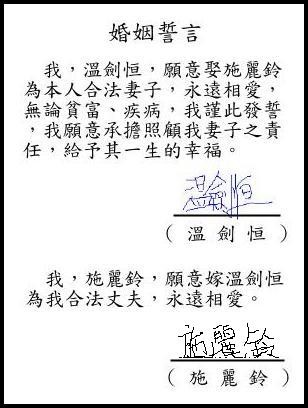 婚姻誓言
我，溫劍恒，願意娶施麗鈴
為本人合法妻子，永遠相愛，
無論貧富、疾病，我謹此發誓
，我願意承擔照顧我妻子之責
任，給予其一生的幸福。
溫劍恒
（溫劍恒）
我，施麗鈴，願意嫁溫劍恒
為我合法丈夫，永遠相愛。
施麗鈴
（施麗鈴）